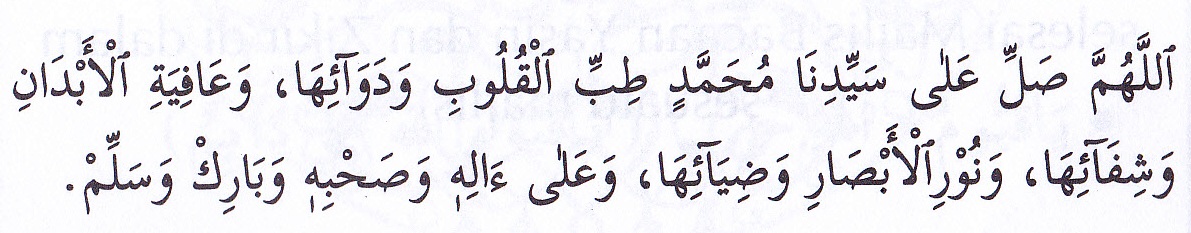 ٱللَّهُمَّ صَلِّ عَلٰى سَيِّدِنَا مُحَمَّدٍ طِبِّ ٱلْقُلُوبِ وَدَوَآئِهَا، وَعَافِيَةِ ٱلْأَبْدَانِ
وَشِفَآئِهَا، وَنُوْرِٱلْأَبْصَارِ وَضِيَآئِهَا، وَعَلٰى ءَالِهٖ وَصَحْبِهٖ وَبَارِكْ وَسَلِّمْ.